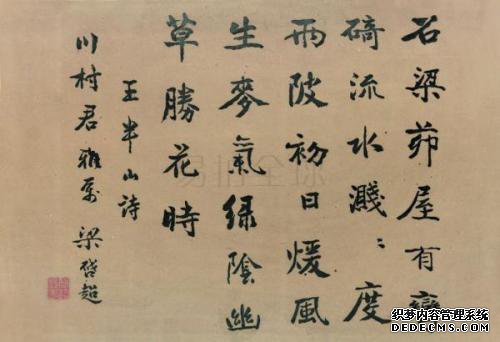 石梁茆屋有彎
碕流水濺〻度
兩陂初日煖風
生麥氣綠陰幽
草勝花時
王半山詩
川村君雅屬 梁啓超
易拍全球
织梦内容管理系统
DEDECMS.COM